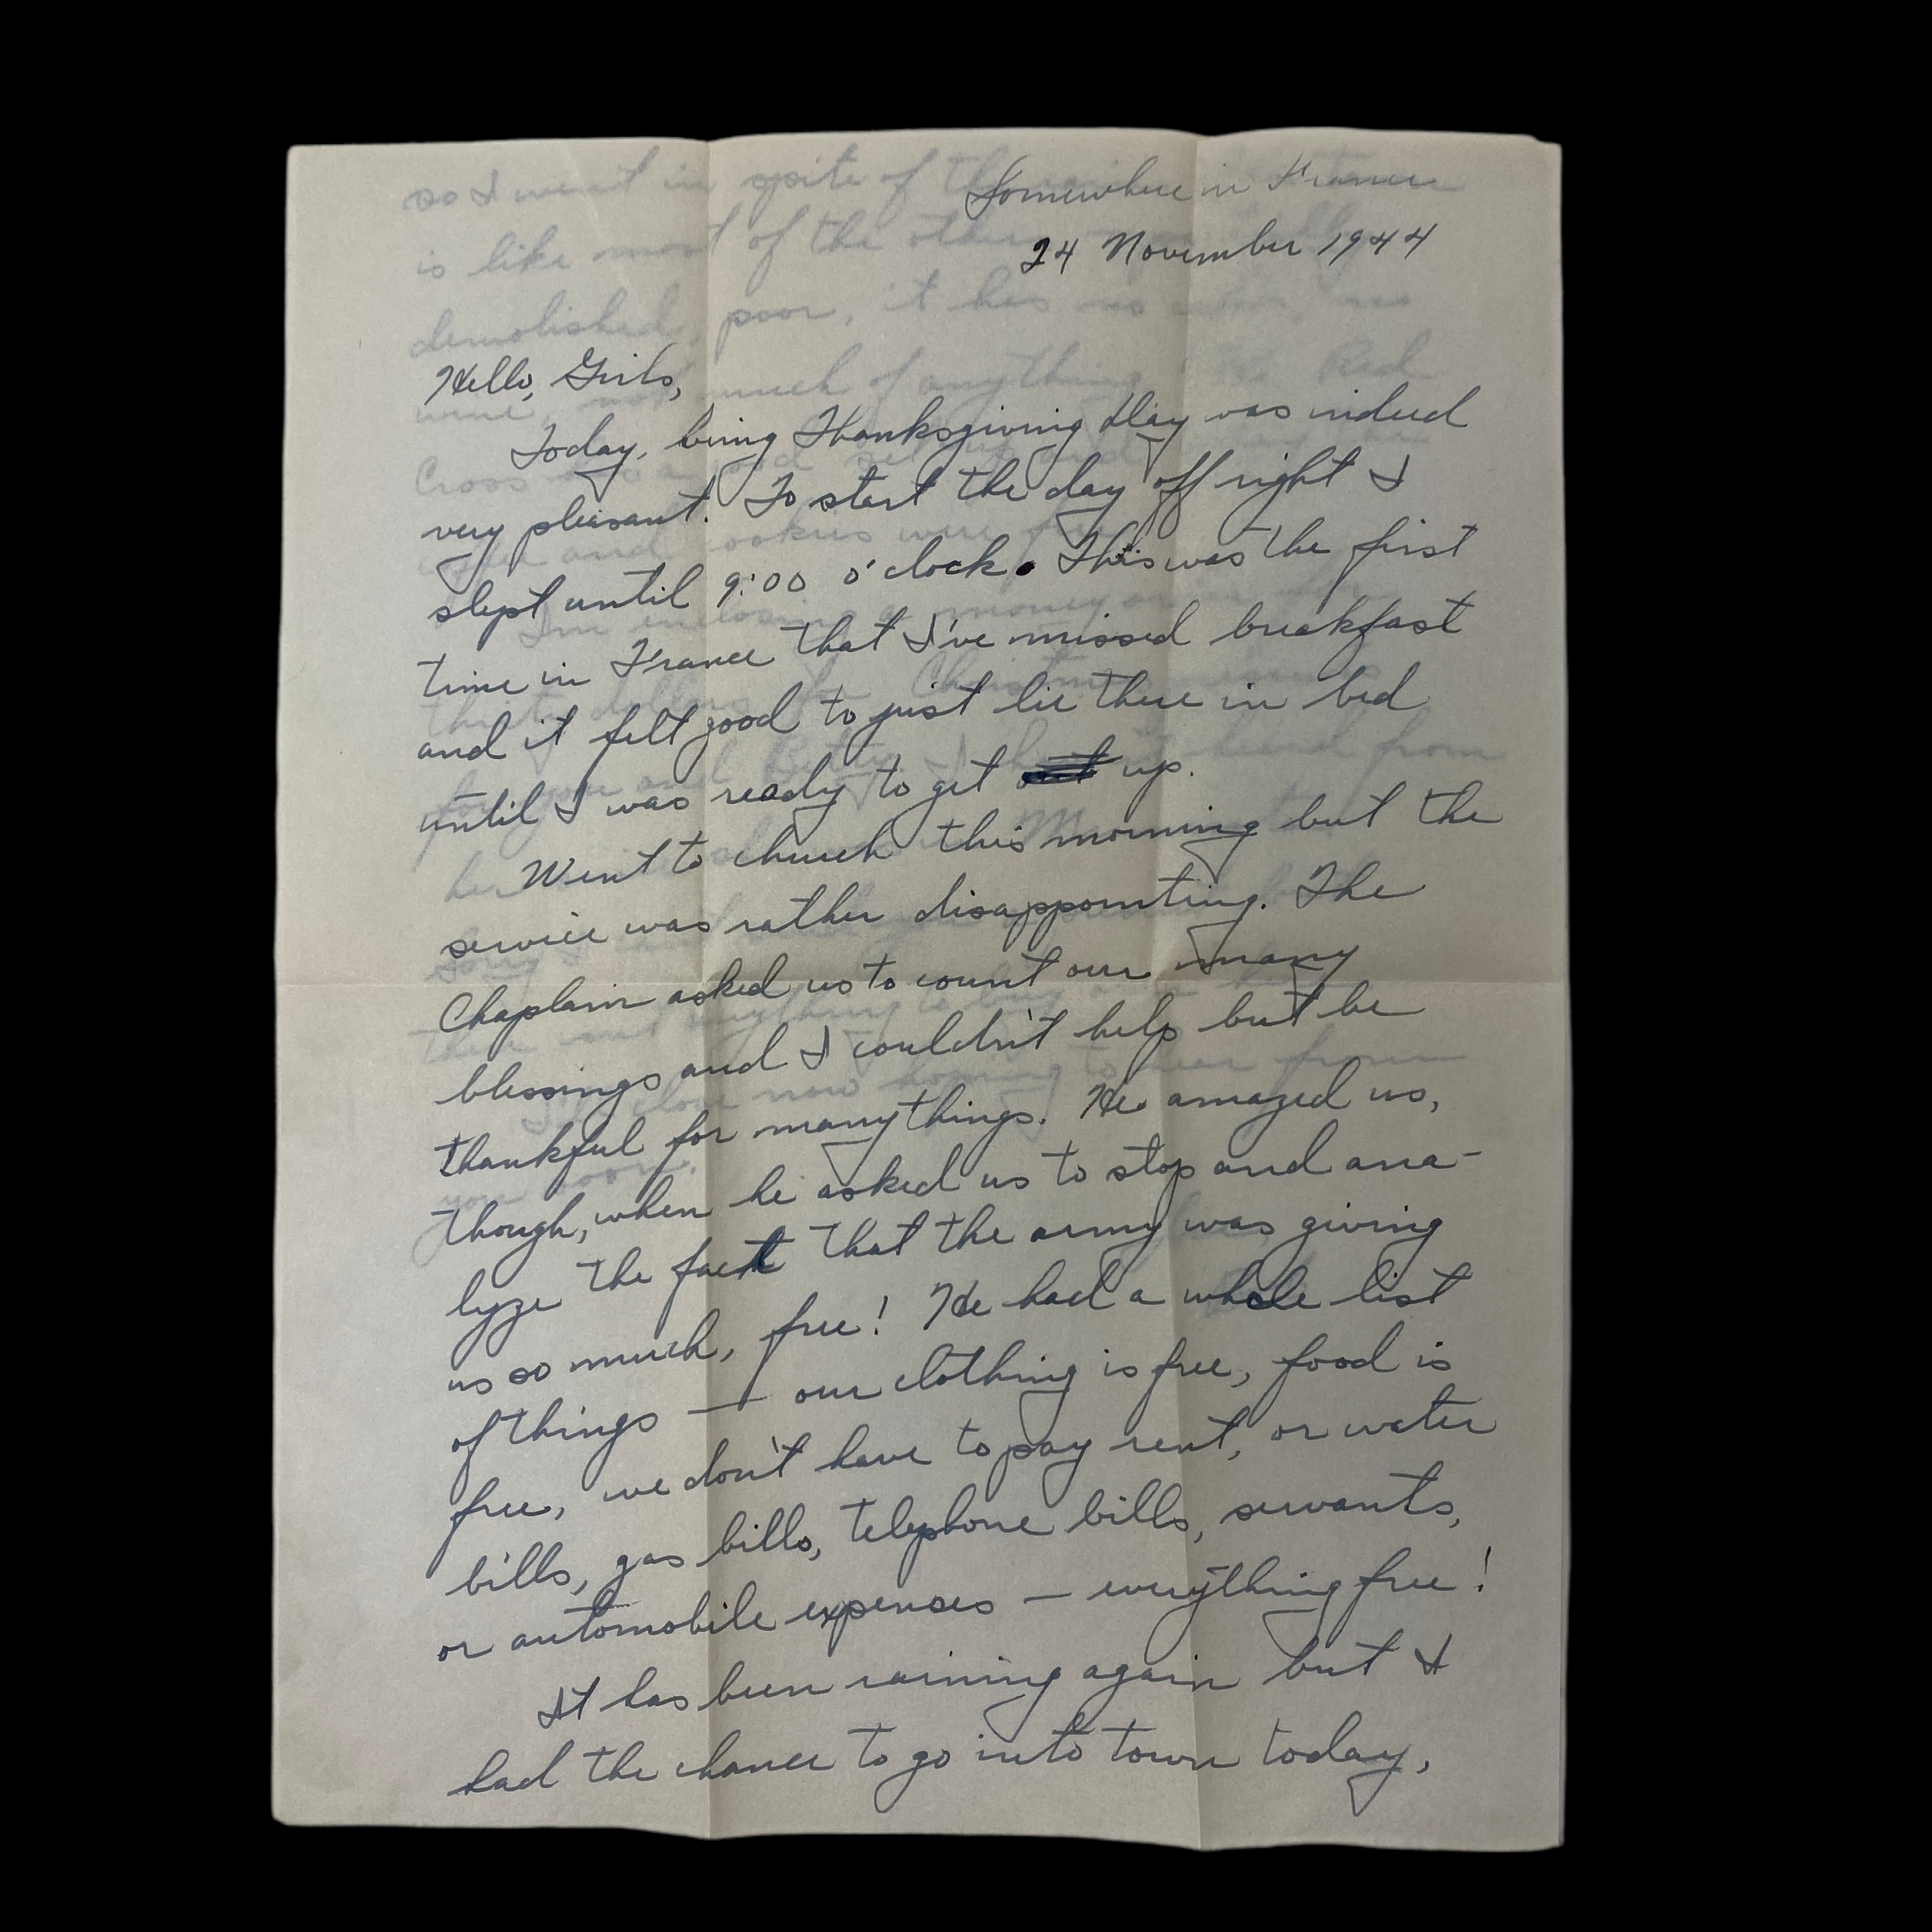 Somewhere in France
24 November 1944
Hello, Girls,
Today, being Thanksgiving Day was indeed
very pleasant. To start the day off right I
slept until 9:00 o'clock. This was the first
time in France that I've missed breakfast
and it felt good to just lie there in bed
until I was ready to get up.
Went to church this morning but the
service was rather disappointing. The
Chaplain asked us to count our many
blessings and I couldn't help but be
thankful for many things. He amazed us,
though, when he asked us to stop and ana-
lyze the fact that the army was giving
us so much, free! He had a whole list
of things — our clothing is free, food is
free, we don't have to pay rent, or water
bills, gas bills, telephone bills, servants,
or automobile expenses — everything free!
It has been raining again but I
had the chance to go into town today,